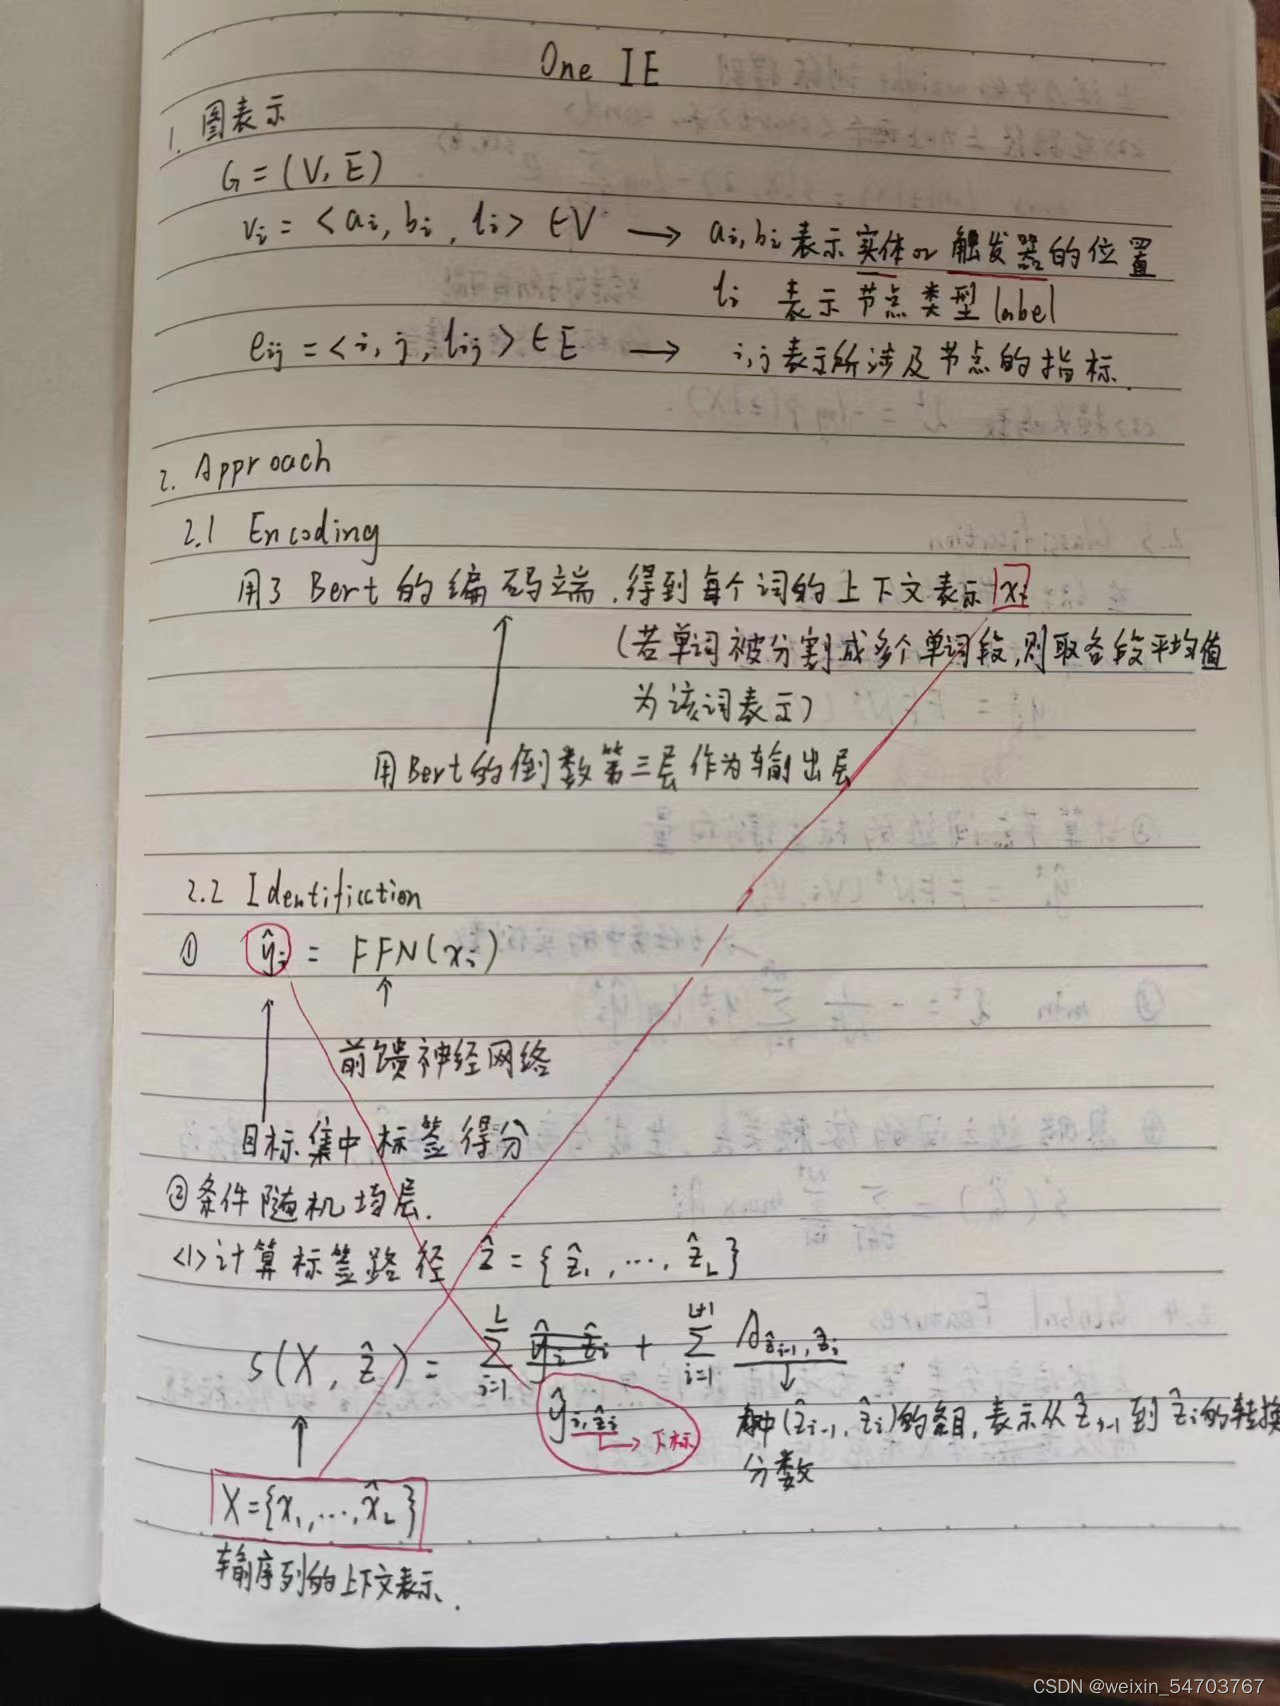 One IE
1. 图表示
G = (V, E)
vi = <ai, bi, li> ∈V → ai, bi 表示 实体 or 触发器的位置
li 表示 节点类型 label
eij = <i, j, lij> ∈E → i, j 表示所涉及节点的指标.
2. Approach
2.1 Encoding
用了 Bert 的 编码端, 得到每个词的上下文表示 xi
(若单词被分割成多个单词段,则取各段平均值
为该词表示)
用Bert的倒数第三层作为输出层
2.2 Identification
① ŷi = FFN(xi)
前馈神经网络
目标集中标签得分
②条件随机场层.
<1>计算标签路径 ẑ = {ẑ1, ..., ẑL}
s(X, ẑ) = Σ(i=1, L) ŷi ẑi + Σ(i=1, L+1) Aẑi-1, ẑi
ŷi,ẑi → 下标
(ẑi-1, ẑi)的条目, 表示从 ẑi-1 到 ẑi 的转换
分数
X={x1, ..., x̂L}
输序列的上下文表示.
CSDN @weixin_54703767